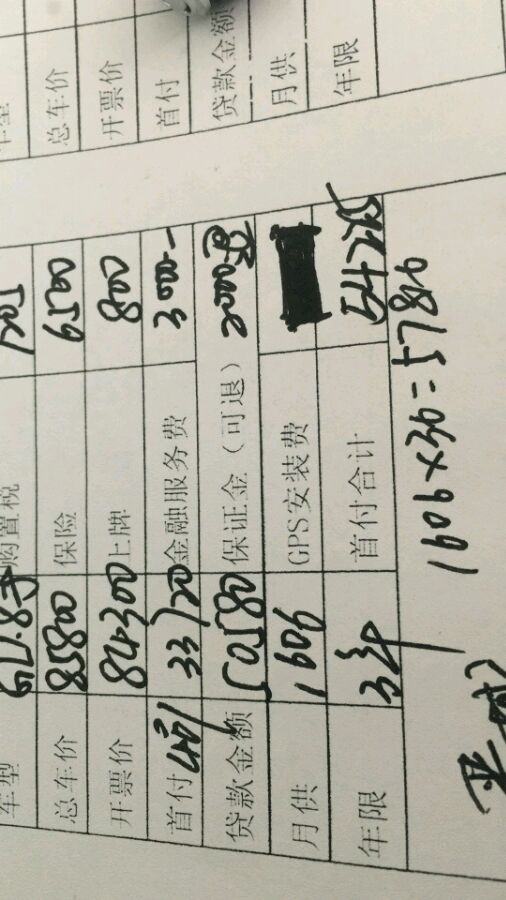 车型 购置税 车型
总车价 85800 保险 总车价
开票价 84300 上牌 800 开票价
首付 33720 金融服务费 3000 首付
贷款金额 50580 保证金（可退） 贷款金额
月供 1606 GPS安装费 月供
年限 3年 首付合计 年限
1606×36=57816